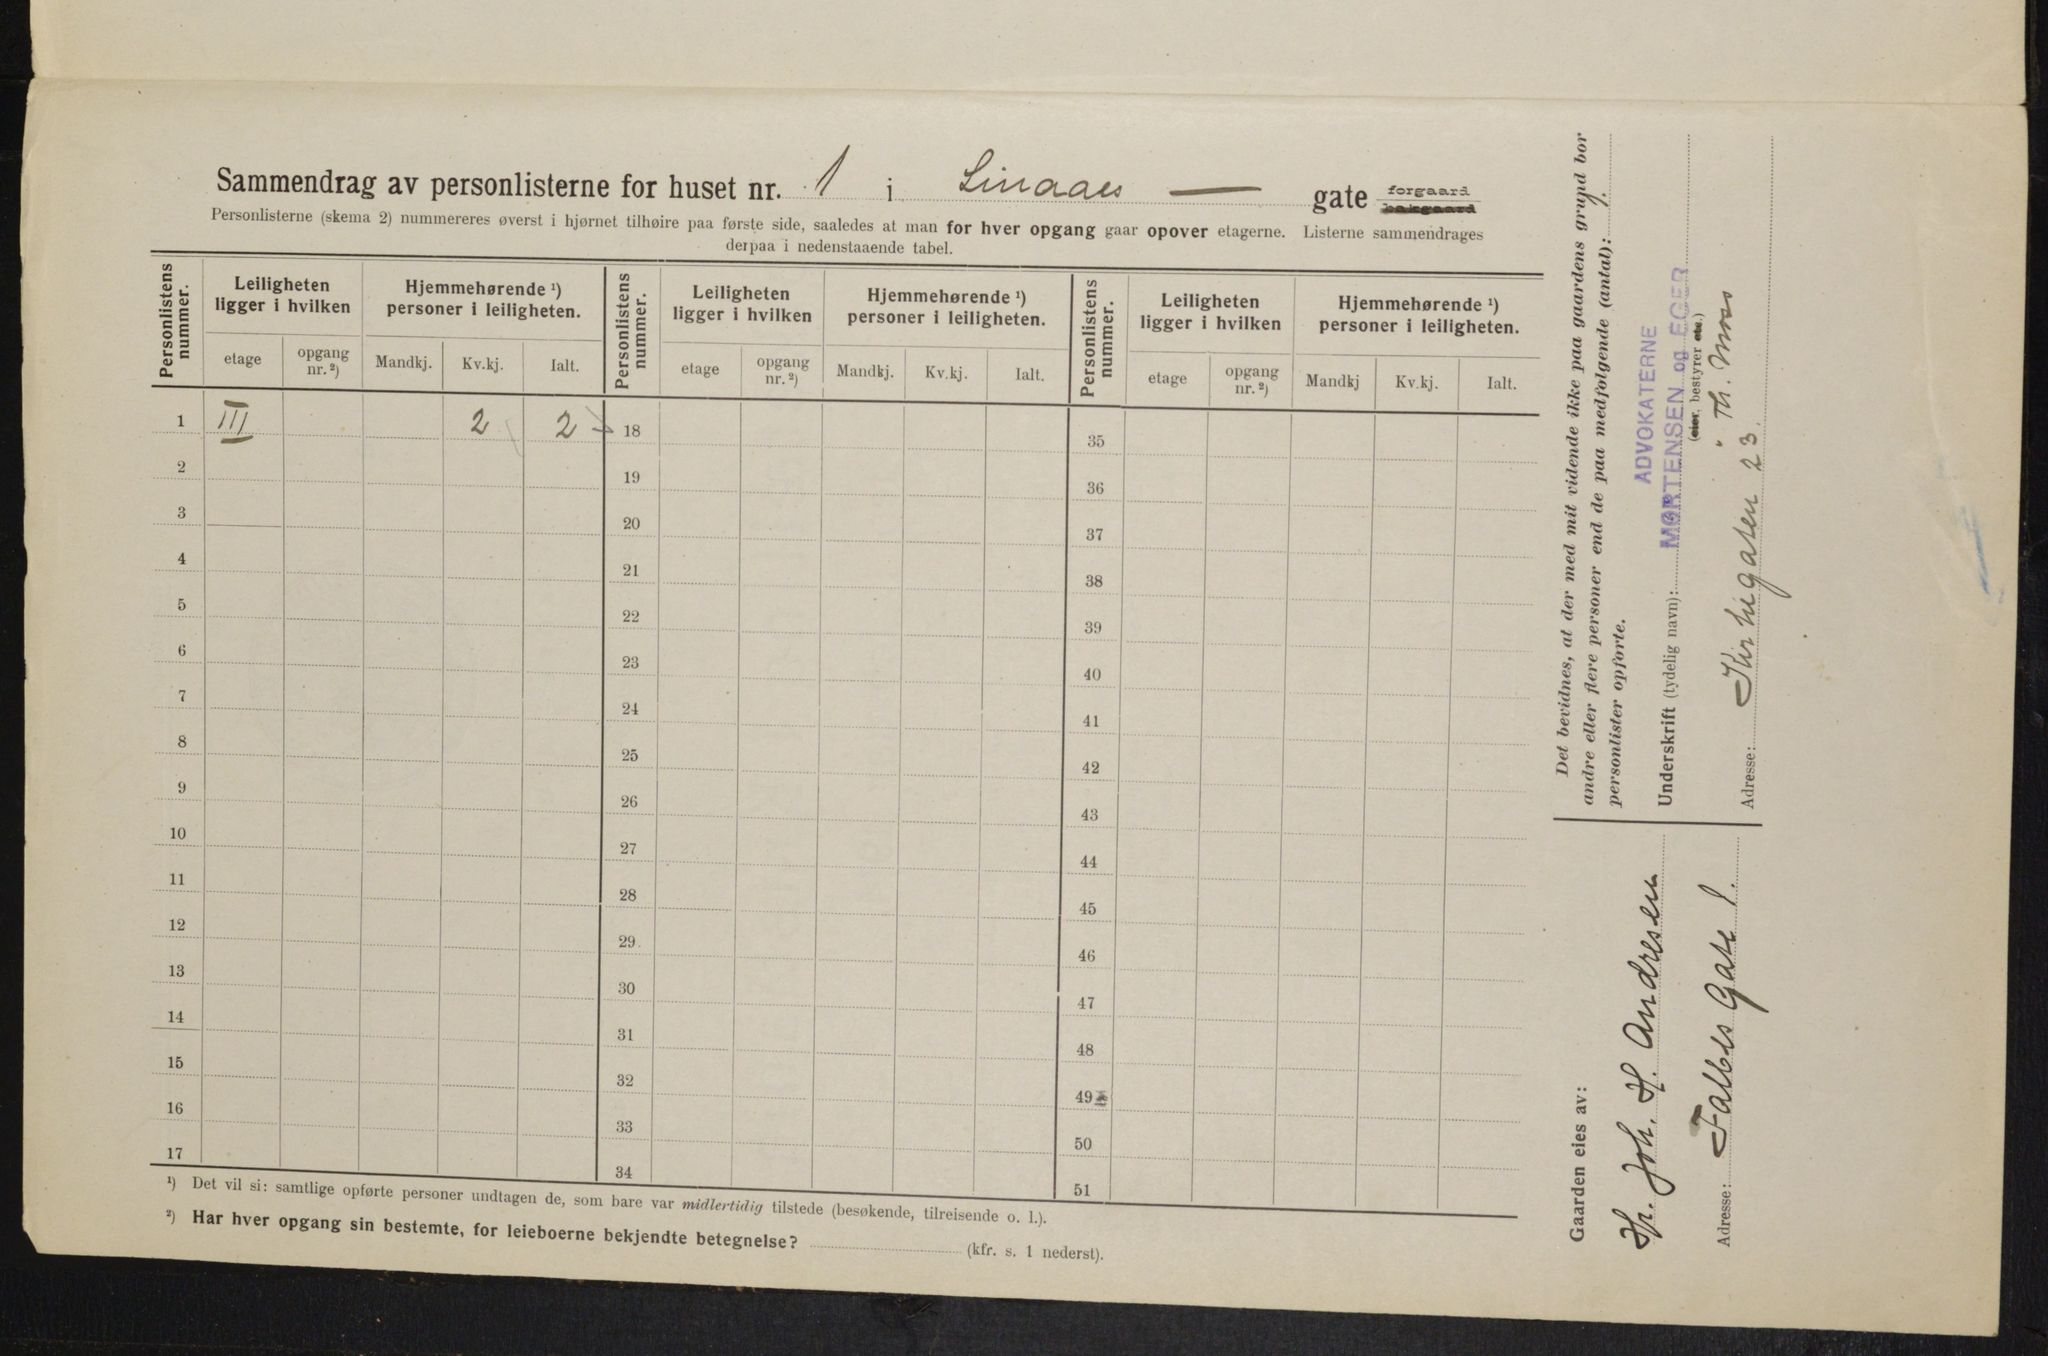 Sammendrag av personlisterne for huset nr. 1 i Linaaes — gate forgaard bakgaard
Personlisterne (skema 2) nummereres øverst i hjørnet tilhøire paa første side, saaledes at man for hver opgang gaar opover etagerne. Listerne sammendrages
derpaa i nedenstaaende tabel.
Personlistens nummer. Leiligheten ligger i hvilken Hjemmehørende ¹) personer i leiligheten. Personlistens nummer. Leiligheten ligger i hvilken Hjemmehørende ¹) personer i leiligheten. Personlistens nummer. Leiligheten ligger i hvilken Hjemmehørende ¹) personer i leiligheten.
etage opgang nr.²) Mandkj. Kv.kj. Ialt. etage opgang nr.²) Mandkj. Kv.kj. Ialt. etage opgang nr.²) Mandkj Kv.kj. Ialt.
1 III 2 2 18 35
2 19 36
3 20 37
4 21 38
5 22 39
6 23 40
7 24 41
8 25 42
9 26 43
10 27 44
11 28 45
12 29 46
13 30 47
14 31 48
15 32 49
16 33 50
17 34 51
¹) Det vil si: samtlige opførte personer undtagen de, som bare var midlertidig tilstede (besøkende, tilreisende o. l.).
²) Har hver opgang sin bestemte, for leieboerne bekjendte betegnelse? (kfr. s. 1 nederst).
Det bevidnes, at der med mit vidende ikke paa gaardens grund bor
andre eller flere personer end de paa medfølgende (antal): 1.
personlister opførte.
ADVOKATERNE
Underskrift (tydelig navn): MORTENSEN og EGER
(eier, bestyrer etc.)
Th.
Adresse: Kirkegaten 23.
Gaarden eies av:
Hr. Joh. H. Andresen
Adresse: Falbes Gate 1.